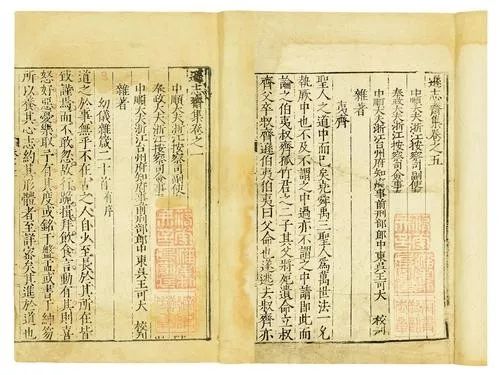 遜志齋集卷之五
中順大夫浙江按察司副使
奉政大夫浙江按察司僉事
中順大夫浙江台州府知府事前刑部郎中東吳王可大 校刊
雜著
夷齊
聖人之道中而已矣堯舜禹三聖人為萬世法一允
執厥中也不及不謂之中過亦不謂之中請即此而
論之伯夷叔齊孤竹君之二子其父將死遺命立叔
齊父卒叔齊遜伯夷伯夷曰父命也遂逃去叔齊亦
遜志齋集卷之一
中順大夫浙江按察司副使
奉政大夫浙江按察司僉事
中順大夫浙江台州府知府事前刑部郎中東吳王可大 校刊
雜著
幼儀雜箴二十首有序
道之於事無乎不在古之人自少至長於其所在皆
致謹焉而不敢忽故行跪揖拜飲食言動有其則喜
怒好惡憂樂取予有其度或銘于盤盂或書于紳笏
所以養其心志約其形體者至詳密矣其進於道也